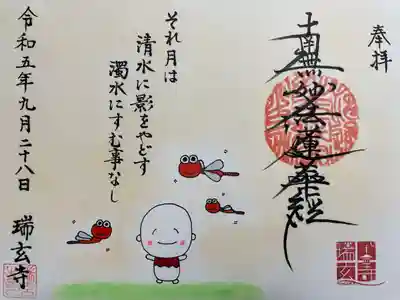 奉拝
南無妙法蓮華経
それ月は
清水に影をやどす
濁水にすむ事なし
令和五年九月二十八日
瑞玄寺